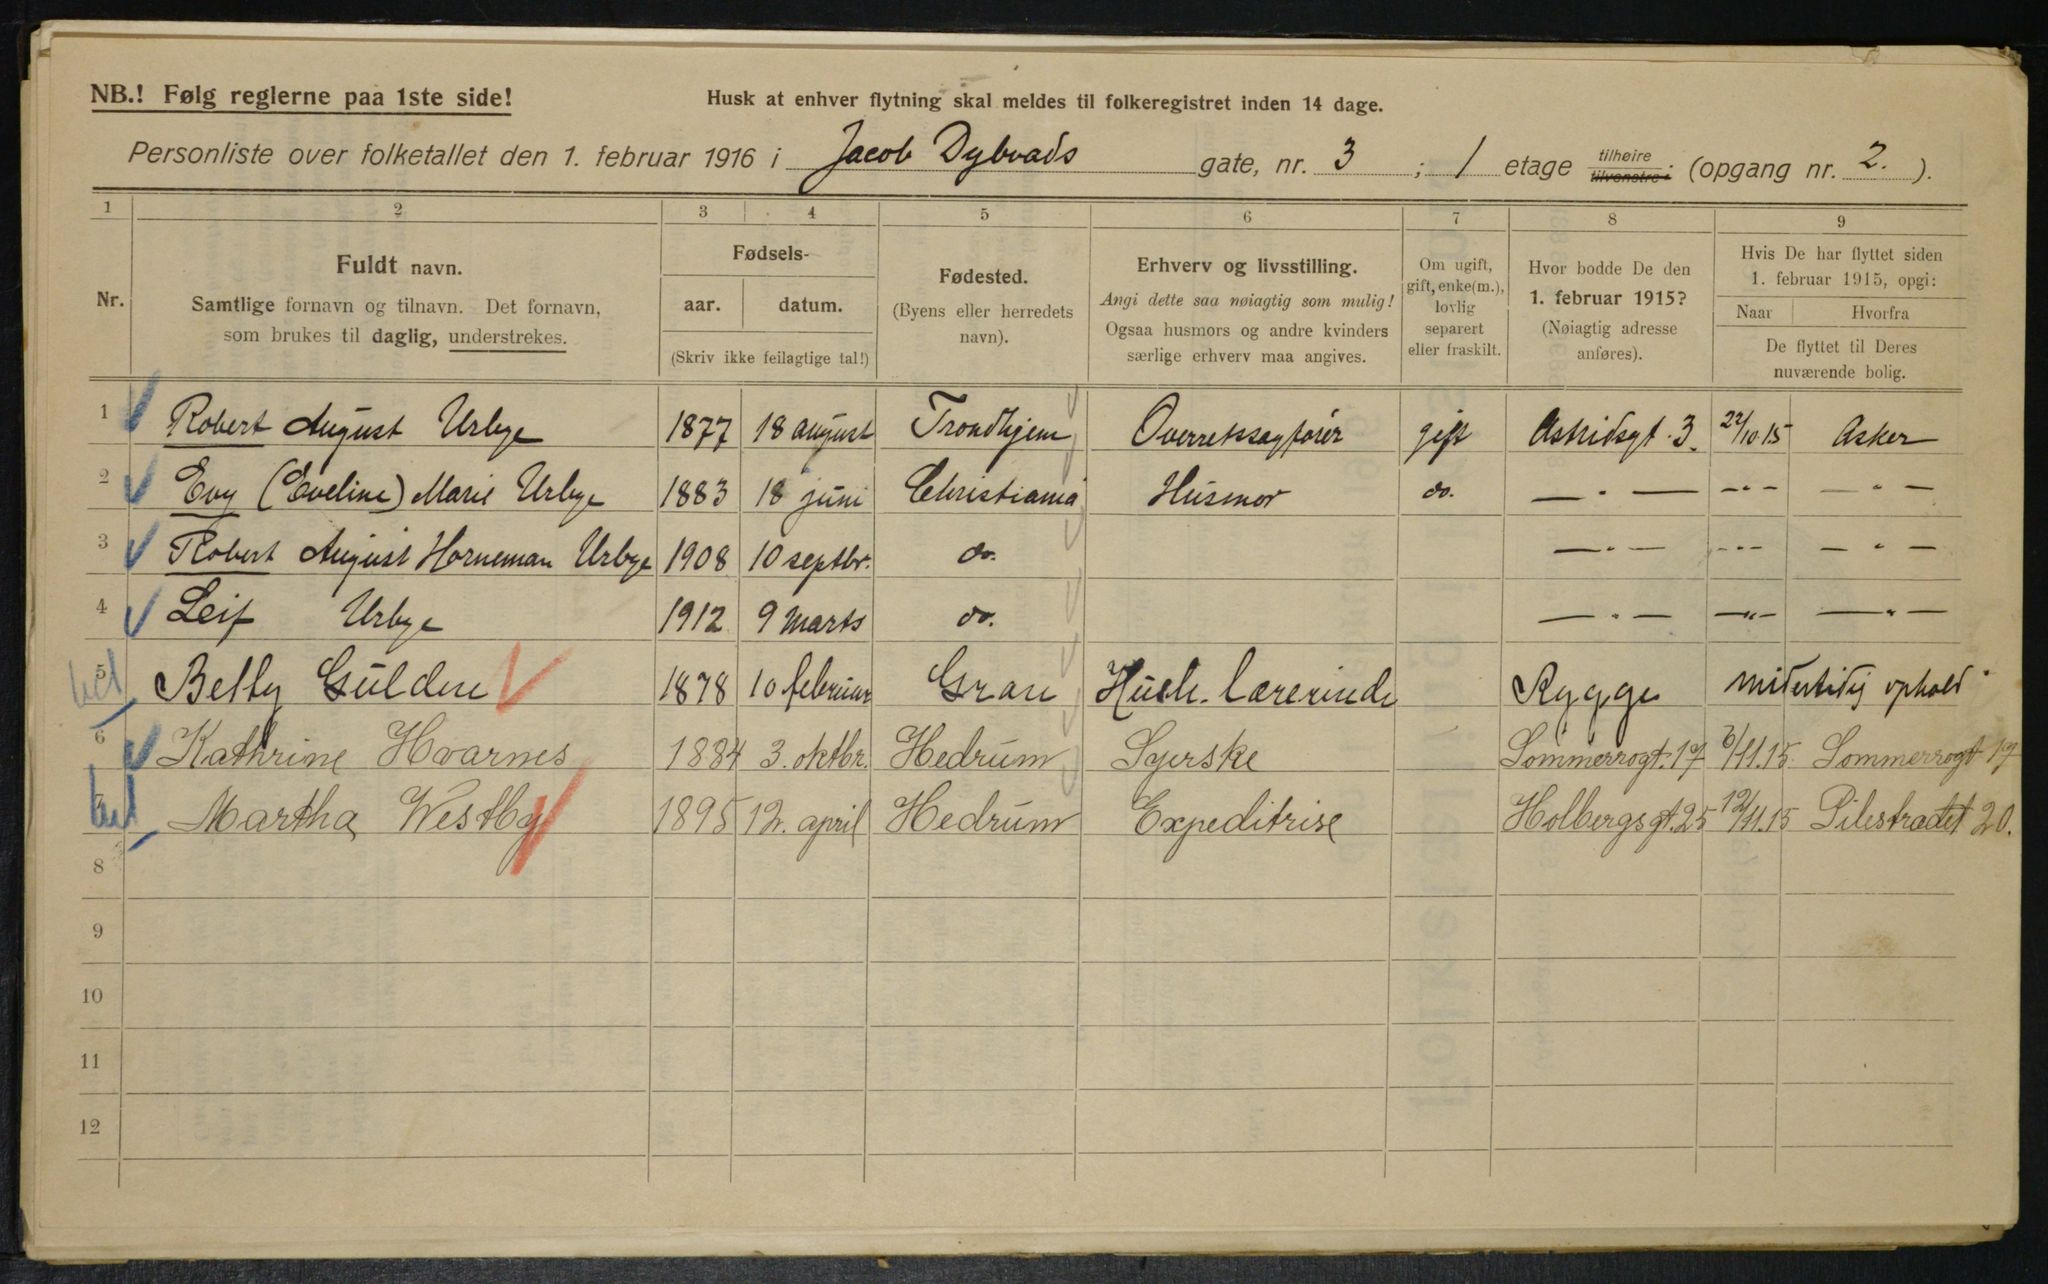 NB.! Følg reglerne paa 1ste side!
Husk at enhver flytning skal meldes til folkeregistret inden 14 dage.
Personliste over folketallet den 1. februar 1916 i Jacob Dybvads gate, nr. 3 ; 1 etage tilhøire tilvenstre: (opgang nr. 2. ).
1 2 3 4 5 6 7 8 9
Nr.
Fuldt navn.
Samtlige fornavn og tilnavn. Det fornavn,
som brukes til daglig, understrekes.
Fødsels-
aar. datum.
(Skriv ikke feilagtige tal!)
Fødested.
(Byens eller herredets
navn).
Erhverv og livsstilling.
Angi dette saa nøiagtig som mulig!
Ogsaa husmors og andre kvinders
særlige erhverv maa angives.
Om ugift,
gift, enke(m.),
lovlig
separert
eller fraskilt.
Hvor bodde De den
1. februar 1915?
(Nøiagtig adresse
anføres).
Hvis De har flyttet siden
1. februar 1915, opgi:
Naar Hvorfra
De flyttet til Deres
nuværende bolig.
1 Robert August Urbye 1877 18 august Trondhjem Overretssagfører gift Astridsgt. 3. 22/10.15 Asker
2 Evy (Eveline) Marie Urbye 1883 18 juni Christiania Husmor do. — " — — " — — " —
3 Robert August Horneman Urbye 1908 10 septbr. do. — " — — " — — " —
4 Leif Urbye 1912 9 Marts do. — " — — " — — " —
5 Betty Gulden 1878 10 februar Gran Hush. Lærerinde Rygge midertidig ophold
6 Kathrine Hvarnes 1884 3. oktbr. Hedrum Syerske Sommerrogt. 17 /11.15 Sommerrogt 17
7 Martha Westby 1895 12. april Hedrum Expeditrise Holbergsgt. 25 12/11.15 Pilestrædet 20.
8
9
10
11
12